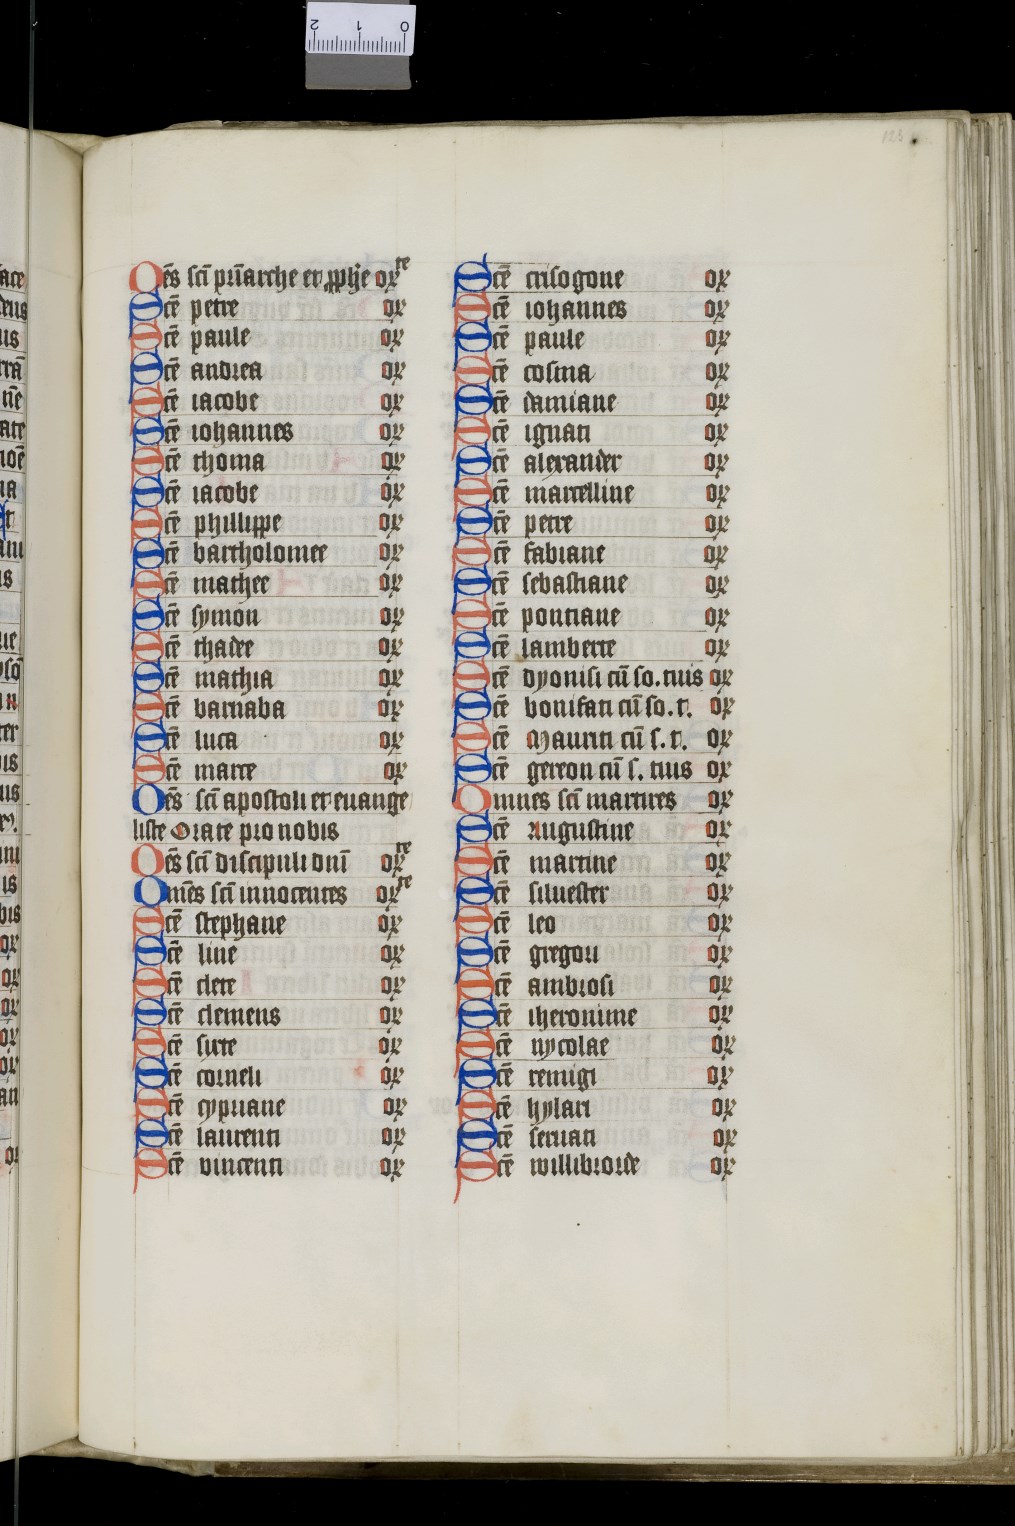 123
Oēs scī pr̄iarche et ꝓphē orᷣte
Scē petre or
Scē paule or
Scē andrea or
Scē iacobe or
Scē iohannes or
Scē thoma or
Scē iacobe or
Scē phillippe or
Scē bartholomee or
Scē mathee or
Scē symon or
Scē thadee or
Scē mathia or
Scē barnaba or
Scē luca or
Scē marce or
Oēs scī apostoli et euange
liste Orate pro nobis
Oēs scī discipuli dnī orte
Omēs scī innocentes orte
Scē stephane or
Scē line or
Scē clete or
Scē clemens or
Scē sixte or
Scē corneli or
Scē cypriane or
Scē laurenti or
Scē vincenti or
Scē crisogone or
Scē iohannes or
Scē paule or
Scē cosma or
Scē damiane or
Scē ignati or
Scē alexander or
Scē marcelline or
Scē petre or
Scē fabiane or
Scē sebastiane or
Scē pontiane or
Scē lamberte or
Scē dyonisi cū so. tuis or
Scē bonifati cū so. t. or
Scē Mauriti cū s. t. or
Scē gereon cū s. tuis or
Omnes scī martires or
Scē Augustine or
Scē martine or
Scē siluester or
Scē leo or
Scē gregori or
Scē ambrosi or
Scē iheronime or
Scē nycolae or
Scē remigi or
Scē hylari or
Scē seruati or
Scē willibrorde or